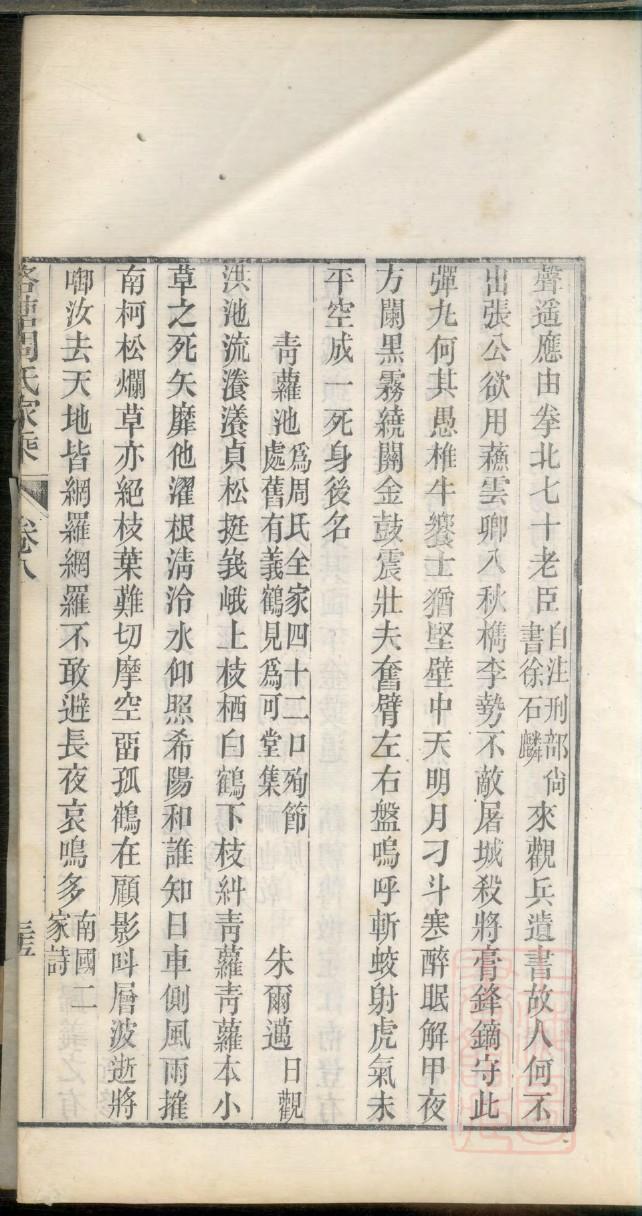 聲遥應由拳北七十老臣自注刑部尙書徐石麟來觀兵遺書故人何不
出張公欲用蘸雲卿入秋檇李勢不敵屠城殺將膏鋒鏑守此
彈丸何其愚椎牛饗士猶堅壁中天明月刁斗寒醉眠解甲夜
方闌黑霧繞關金鼓震壯夫奮臂左右盤嗚呼斬蛟射虎氣未
平空成一死身後名
靑蘿池爲周氏全家四十二口殉節處舊有義鶴見爲可堂集 朱爾邁日觀
洪池流瀁瀁貞松挺峩峨上枝栖白鶴下枝糾靑蘿靑蘿本小
草之死矢靡他濯根淸泠水仰照希陽和誰知日車側風雨摧
南柯松爛草亦絕枝葉難切摩空畱孤鶴在顧影呌層波逝將
啣汝去天地皆網羅網羅不敢避長夜哀鳴多南國二家詩
周氏家乘 卷八 三五